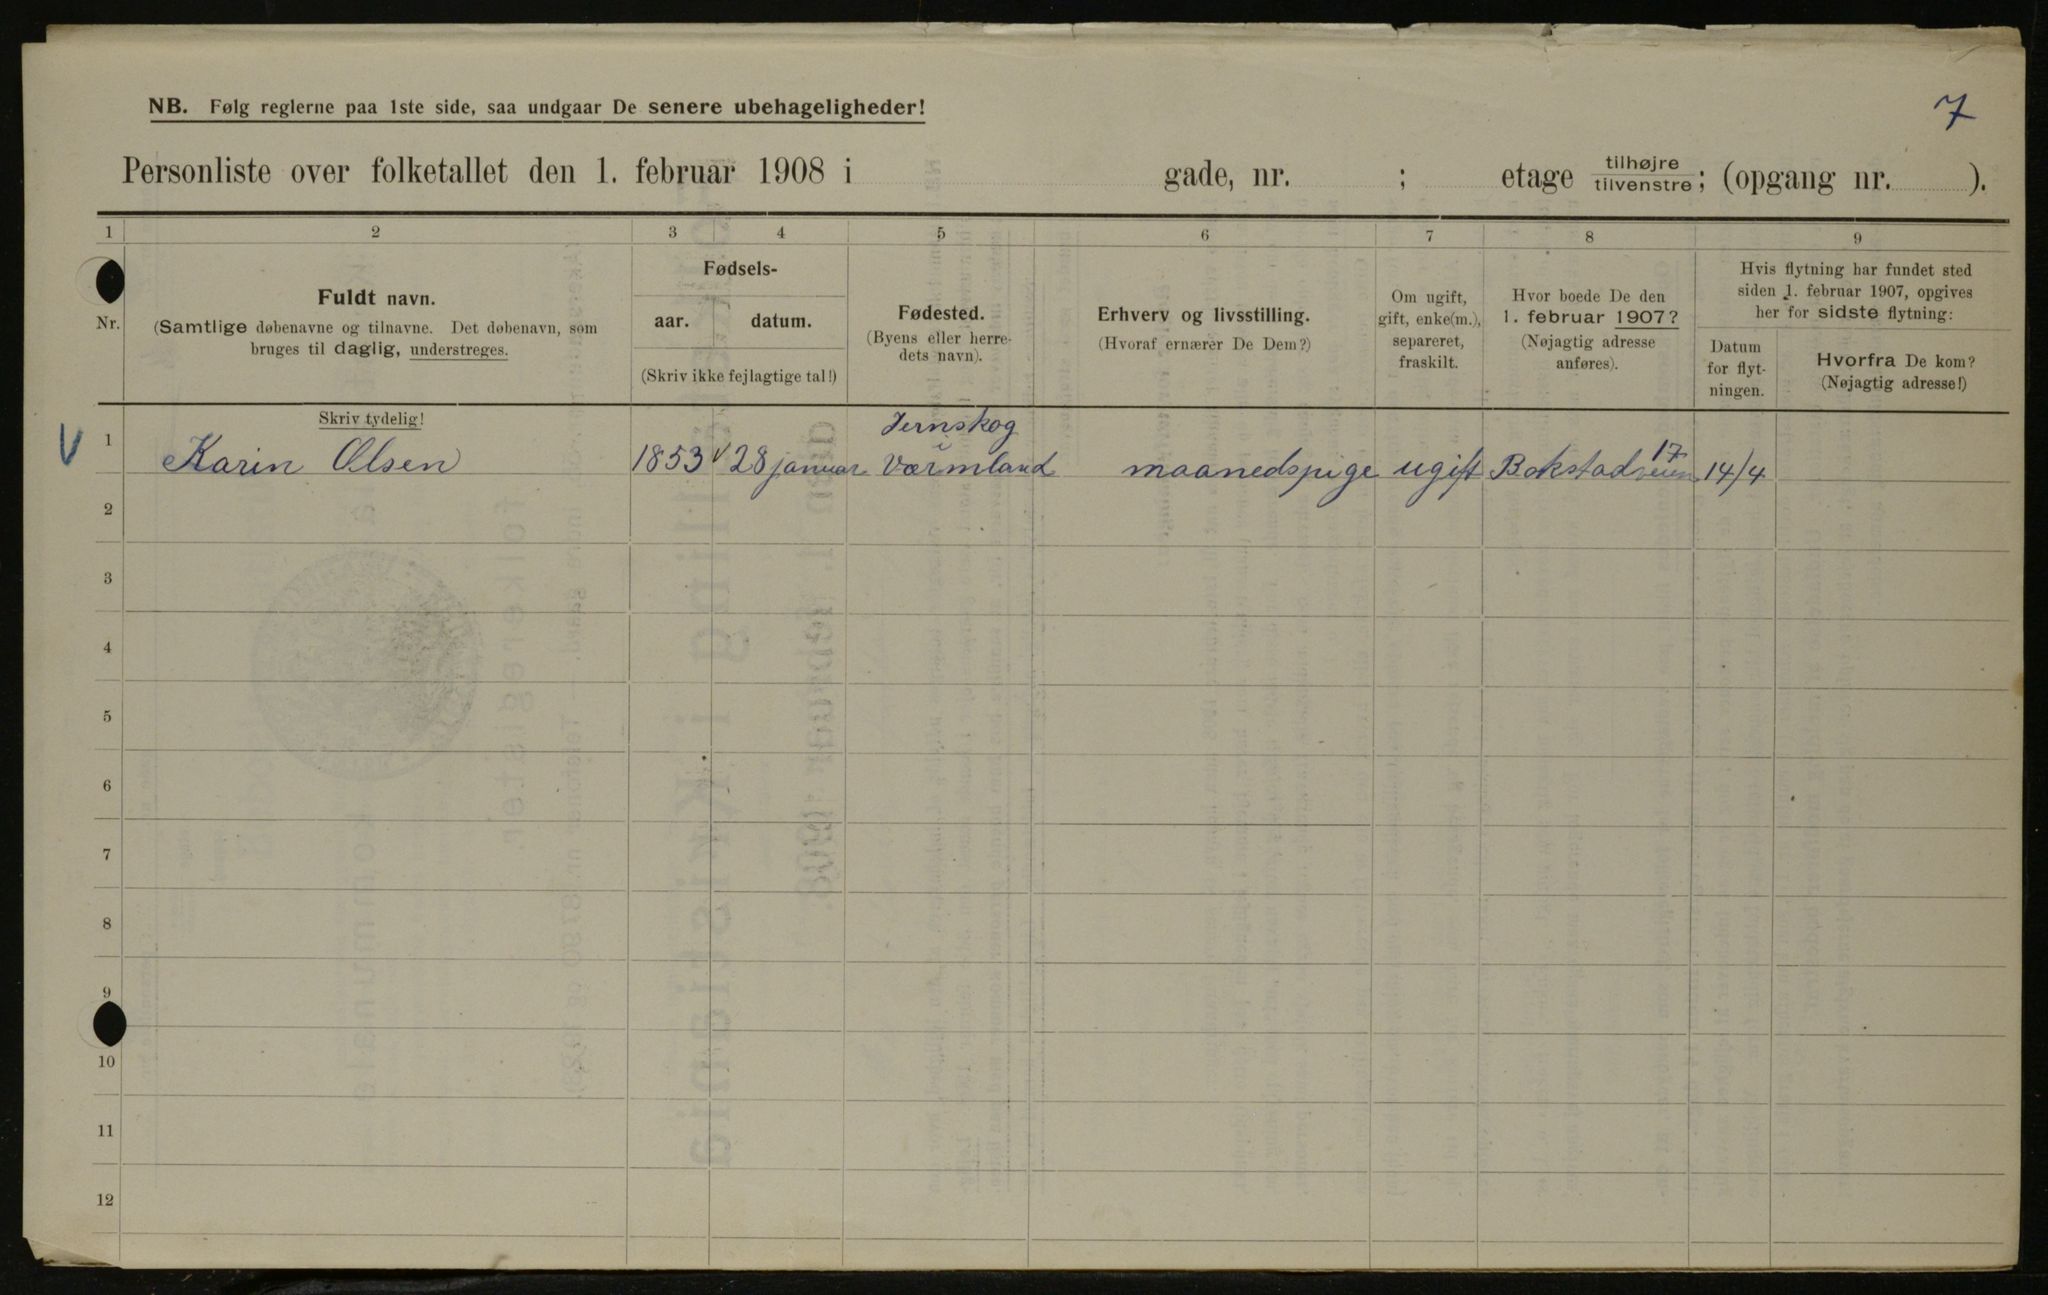 7
NB. Følg reglerne paa 1ste side, saa undgaar De senere ubehageligheder!
Personliste over folketallet den 1. februar 1908 i gade, nr. ; etage tilhøjre/tilvenstre; (opgang nr. ).
1 2 3 4 5 6 7 8 9
Nr.
Fuldt navn.
(Samtlige døbenavne og tilnavne. Det døbenavn, som
bruges til daglig, understreges.
Skriv tydelig!
Fødsels-
aar. datum.
(Skriv ikke fejlagtige tal!)
Fødested.
(Byens eller herre-
dets navn).
Erhverv og livsstilling.
(Hvoraf ernærer De Dem?)
Om ugift,
gift, enke(m.),
separeret,
fraskilt.
Hvor boede De den
1. februar 1907?
(Nøjagtig adresse
anføres).
Hvis flytning har fundet sted
siden 1. februar 1907, opgives
her for sidste flytning:
Datum
for flyt-
ningen.
Hvorfra De kom?
(Nøjagtig adresse!)
Jernskog
i 17
V 1 Karin Olsen 1853 28 januar Värmland maanedspige ugift Bokstadveien 14/4
2
3
4
5
6
7
8
9
10
11
12